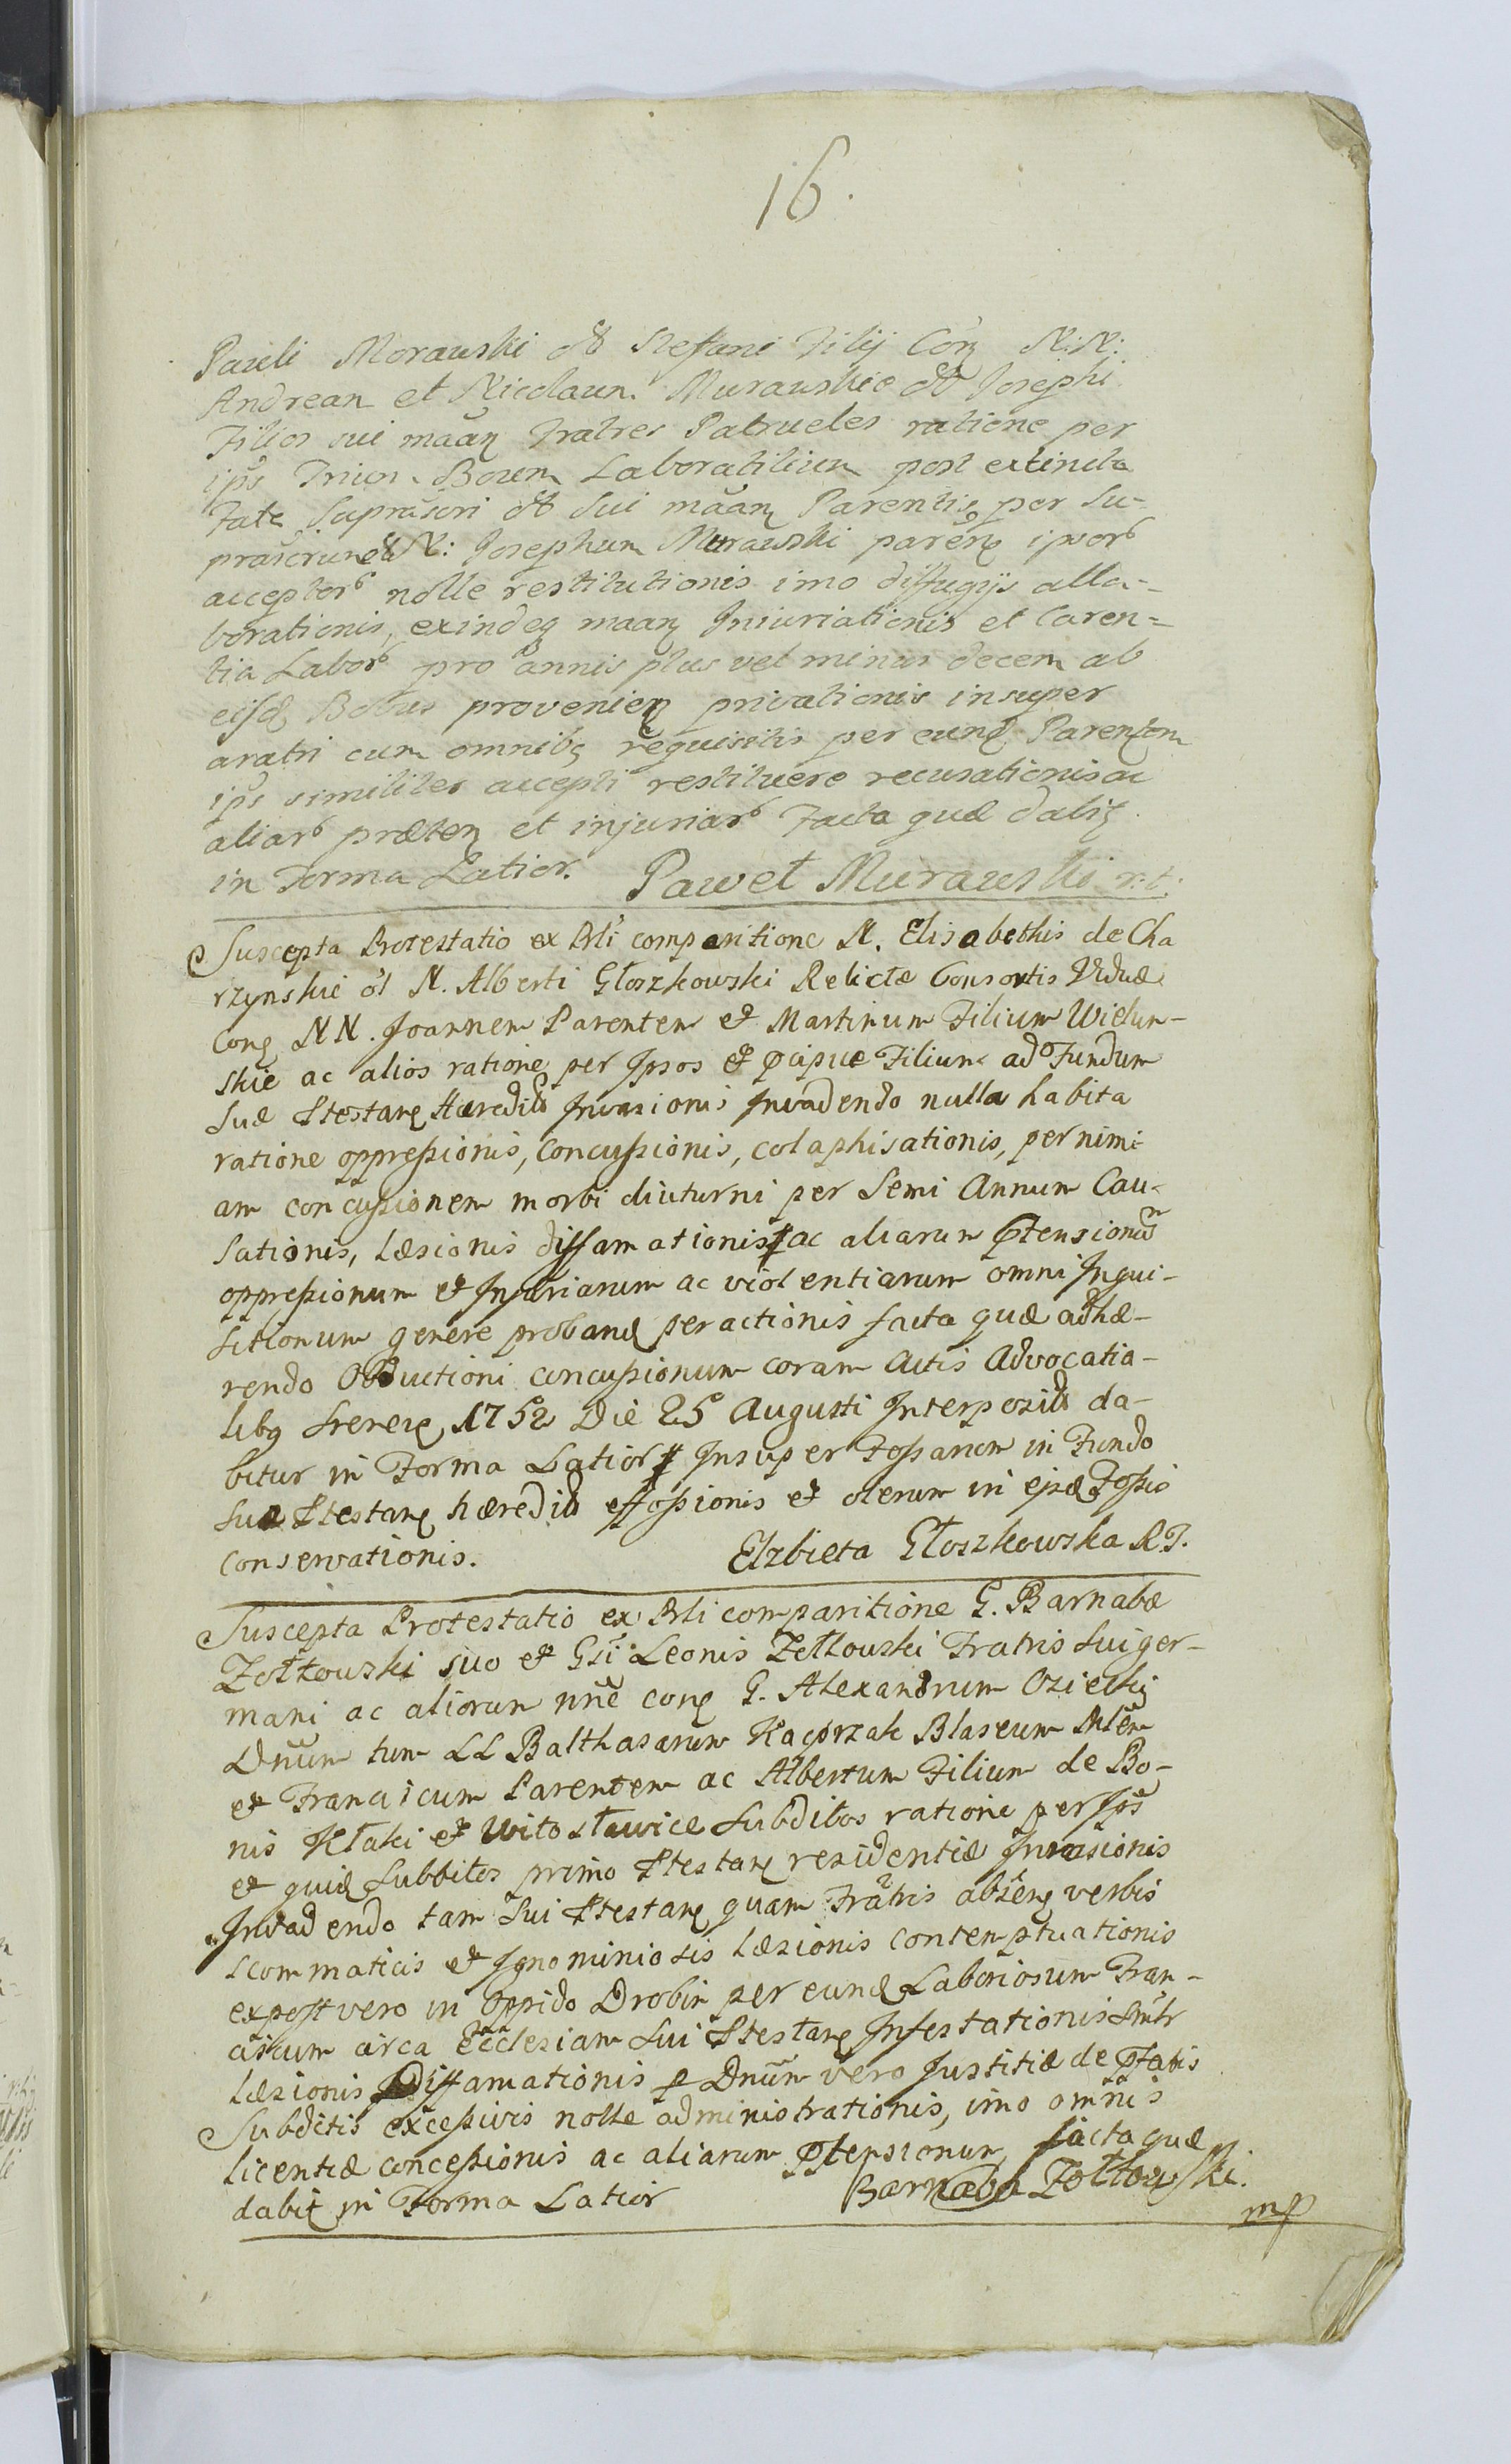 16.
Pauli Morawski olỉ Stefani Filij Conţ N:N:
Andream et Nicolaum Murawskie olỉ Josephi
Filios sui maãnţ Fratres Patrueles ratione per
ipsˢ Trium Boum Laboratilium post extincta
Fata Suprascri olỉ Sui maãnţ Parentis per Su-
prascrunɗ N: Josephum Murawski parenţ ipsorͧ
acceptorͧ nolle restitutionis imo diffugijs alla-
borationis, exindeq maanţ Iniuriationis et Caren-
tia Laborͧ pro annis plus vel minus decem ab
eisdę Bobus provenienţ privationis insuper
aratri cum omnibꝫ requisitis per eundę Parentem
ipsˢ similiter accepti restituere recusationis ac
aliarͧ prætenţ et injuriarͧ Facta quæ dabiţ
in Forma Latior. Paweł Murawski r:t:
Suscepta Protestatio ex Prli comparitione N. Elisabethis de Cha
rzynskie ol N. Alberti Głoszkowski Relictæ Consortis Viduæ
Conţ NN. Joannem Parentem et Martinum Filium Wielun-
skie ac alios ratione per Ipsos et p̃cipue Filium ad Fundum
Suæ Ptestanţ Hæredilƭ Invasionis Invadendo nulla habita
ratione oppressionis, Concussionis, colaphisationis, per nimi
am concussionem morbi diuturni per Semi Annum Cau-
sationis, læsionis diffamationis ac aliarum p̃tensionũ
oppressionum et Injuriarum ac violentiarum omni Inqui-
sitionum genere probandę peractionis facta quæ adhæ-
rendo Obductioni concussionum coram Actis Advocatia-
libꝫ Srenenţ 1752 Die 25 Augusti Interposilƭ da-
bitur in Forma Latior Insuper Fossarum in Fundo
Suæ Ptestanţ hæredilƭ effossionis et olerum in ejsdę Fossis
conservationis. Elzbieta Głoszkowska RT.
Suscepta Protestatio ex Prli comparitione G. Barnabæ
Zołtowski suo et Gsi Leonis Zołtowski Fratris Sui ger-
mani ac aliorum nñe conţ G. Alexandrum Osieckį
Dnũm tum LL Balthasarum Kaczorzak Blaseum Mlẽm
et Franciscum Parentem ac Albertum Filium de Bo-
nis Kłaki et Witosławice Subditos ratione per Ipsˢ
et quidę Subbitos primo Ptestanţ residentiæ Invasionis
Invadendo tam Sui Ptestanţ quam Fratris absenţ verbis
scommaticis et Ignominiosis læsionis contemptuationis
expost vero in Oppido Drobin per eundę Laboriosum Fran-
ciscum circa Ecclesiam Sui Ptestanţ Infestationis Smtr
læsionis Diffamationis p Dnũm vero Justitiæ de p̃fatis
Subditis excessivis nolle administrationis, imo omnis
licentiæ concessionis ac aliarum p̃tensionum facta quæ
dabiţ in Forma Latior Barnaba Zołtowski.
mp